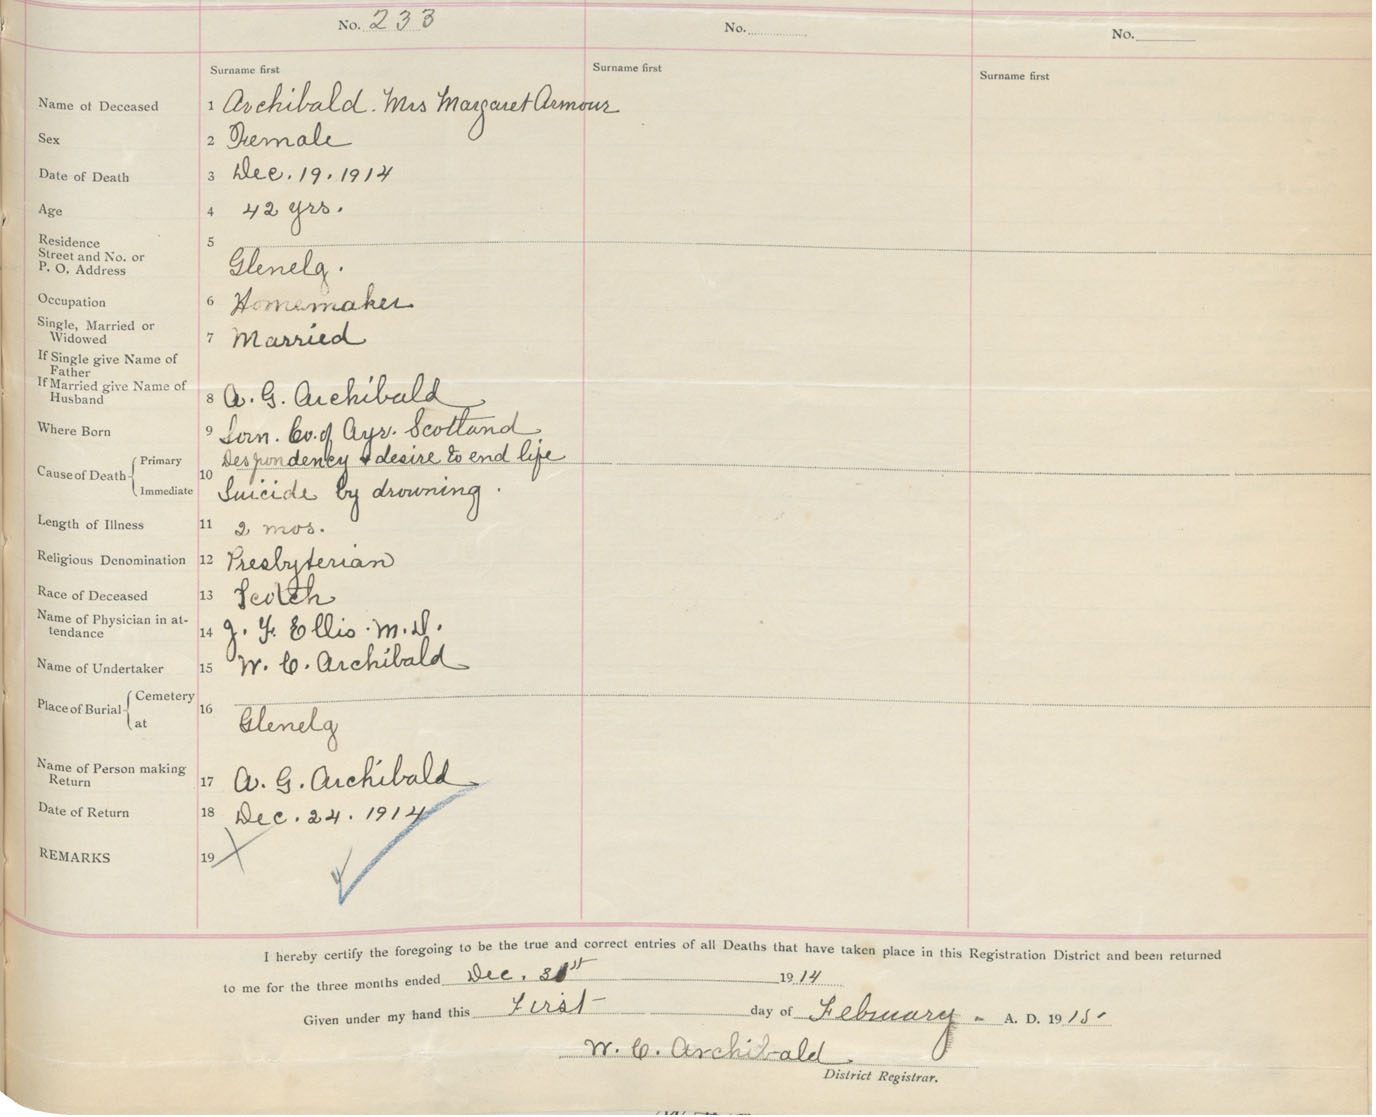 No. 233 No. No.
Surname first Surname first Surname first
Name of Deceased 1 Archibald. Mrs Margaret Armour
Sex 2 Female
Date of Death 3 Dec. 19. 1914
Age 4 42 yrs.
Residence 5
Street and No. or
P. O. Address Glenelg.
Occupation 6 Homemaker
Single, Married or
Widowed 7 Married
If Single give Name of
Father
If Married give Name of
Husband 8 A. G. Archibald
Where Born 9 Sorn. Co. of Ayr. Scotland
Cause of Death Primary 10 Despondency & desire to end life
Immediate Suicide by drowning.
Length of Illness 11 2 mos.
Religious Denomination 12 Presbyterian
Race of Deceased 13 Scotch
Name of Physician in at-
tendance 14 J. F. Ellis. M.D.
Name of Undertaker 15 W. C. Archibald
Place of Burial Cemetery 16
at Glenelg
Name of Person making
Return 17 A. G. Archibald
Date of Return 18 Dec. 24. 1914
REMARKS 19
I hereby certify the foregoing to be the true and correct entries of all Deaths that have taken place in this Registration District and been returned
to me for the three months ended Dec. 31st 1914
Given under my hand this First day of February - A. D. 1915.
W. C. Archibald
District Registrar.